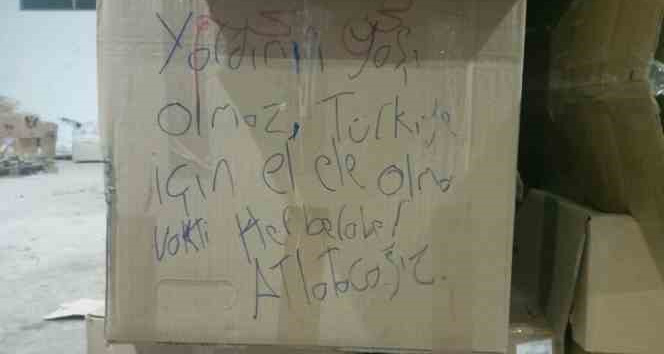 Yardımın yaşı
olmaz, Türkiye
için el ele olma
vakti Her beraber
Atlatcağız.